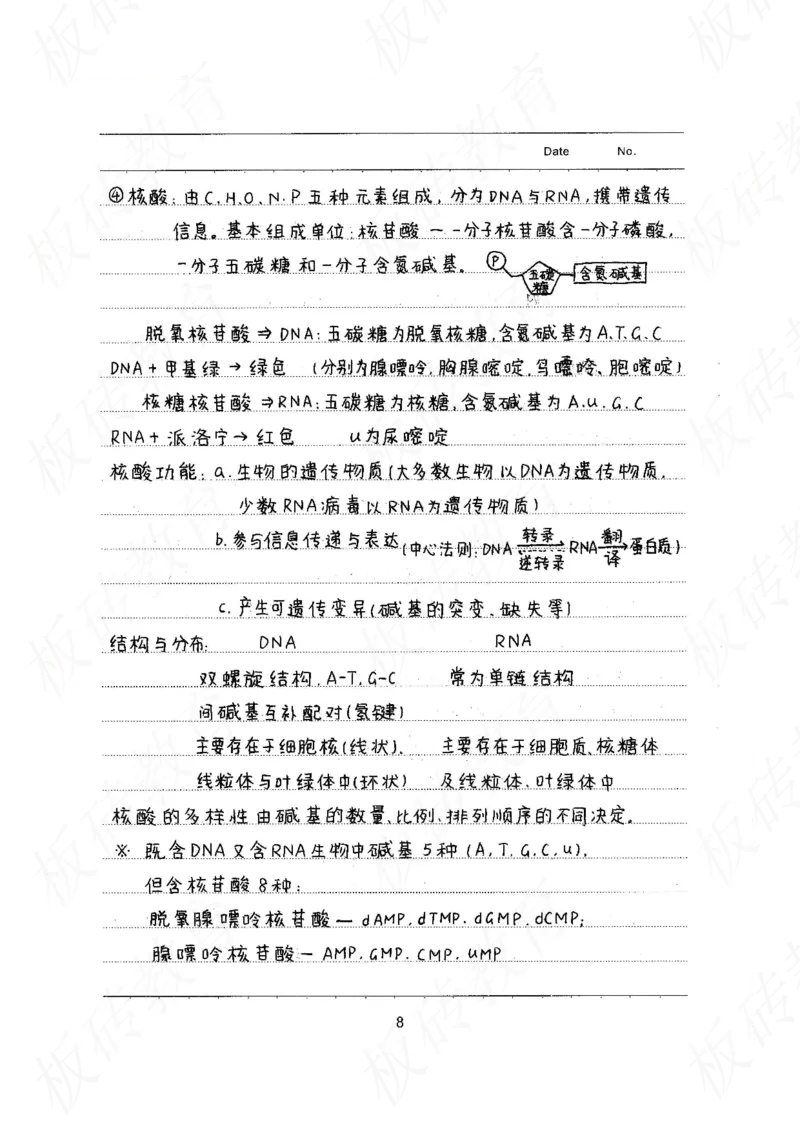 Date No.
④核酸:由C、H、O、N、P五种元素组成,分为DNA与RNA,携带遗传
信息。基本组成单位:核苷酸 — 一分子核苷酸含一分子磷酸,
一分子五碳糖和一分子含氮碱基。 P 五碳糖 含氮碱基
脱氧核苷酸 ⇒ DNA:五碳糖为脱氧核糖,含氮碱基为A、T、G、C
DNA+甲基绿 → 绿色 (分别为腺嘌呤,胸腺嘧啶,鸟嘌呤、胞嘧啶)
核糖核苷酸 ⇒ RNA:五碳糖为核糖,含氮碱基为A、u、G、C
RNA+派洛宁 → 红色 u为尿嘧啶
核酸功能:a.生物的遗传物质(大多数生物以DNA为遗传物质,
少数RNA病毒以RNA为遗传物质)
b.参与信息传递与表达(中心法则:DNA 转录 逆转录 RNA 翻译 蛋白质)
c.产生可遗传变异(碱基的突变、缺失等)
结构与分布: DNA RNA
双螺旋结构,A-T,G-C 常为单链结构
间碱基互补配对(氢键)
主要存在于细胞核(线状)、 主要存在于细胞质、核糖体
线粒体与叶绿体中(环状) 及线粒体、叶绿体中
核酸的多样性由碱基的数量、比例、排列顺序的不同决定。
※ 既含DNA又含RNA生物中碱基5种(A,T,G,C,u),
但含核苷酸8种:
脱氧腺嘌呤核苷酸 — dAMP,dTMP,dGMP,dCMP;
腺嘌呤核苷酸 — AMP,GMP,CMP,UMP
8
板砖教育